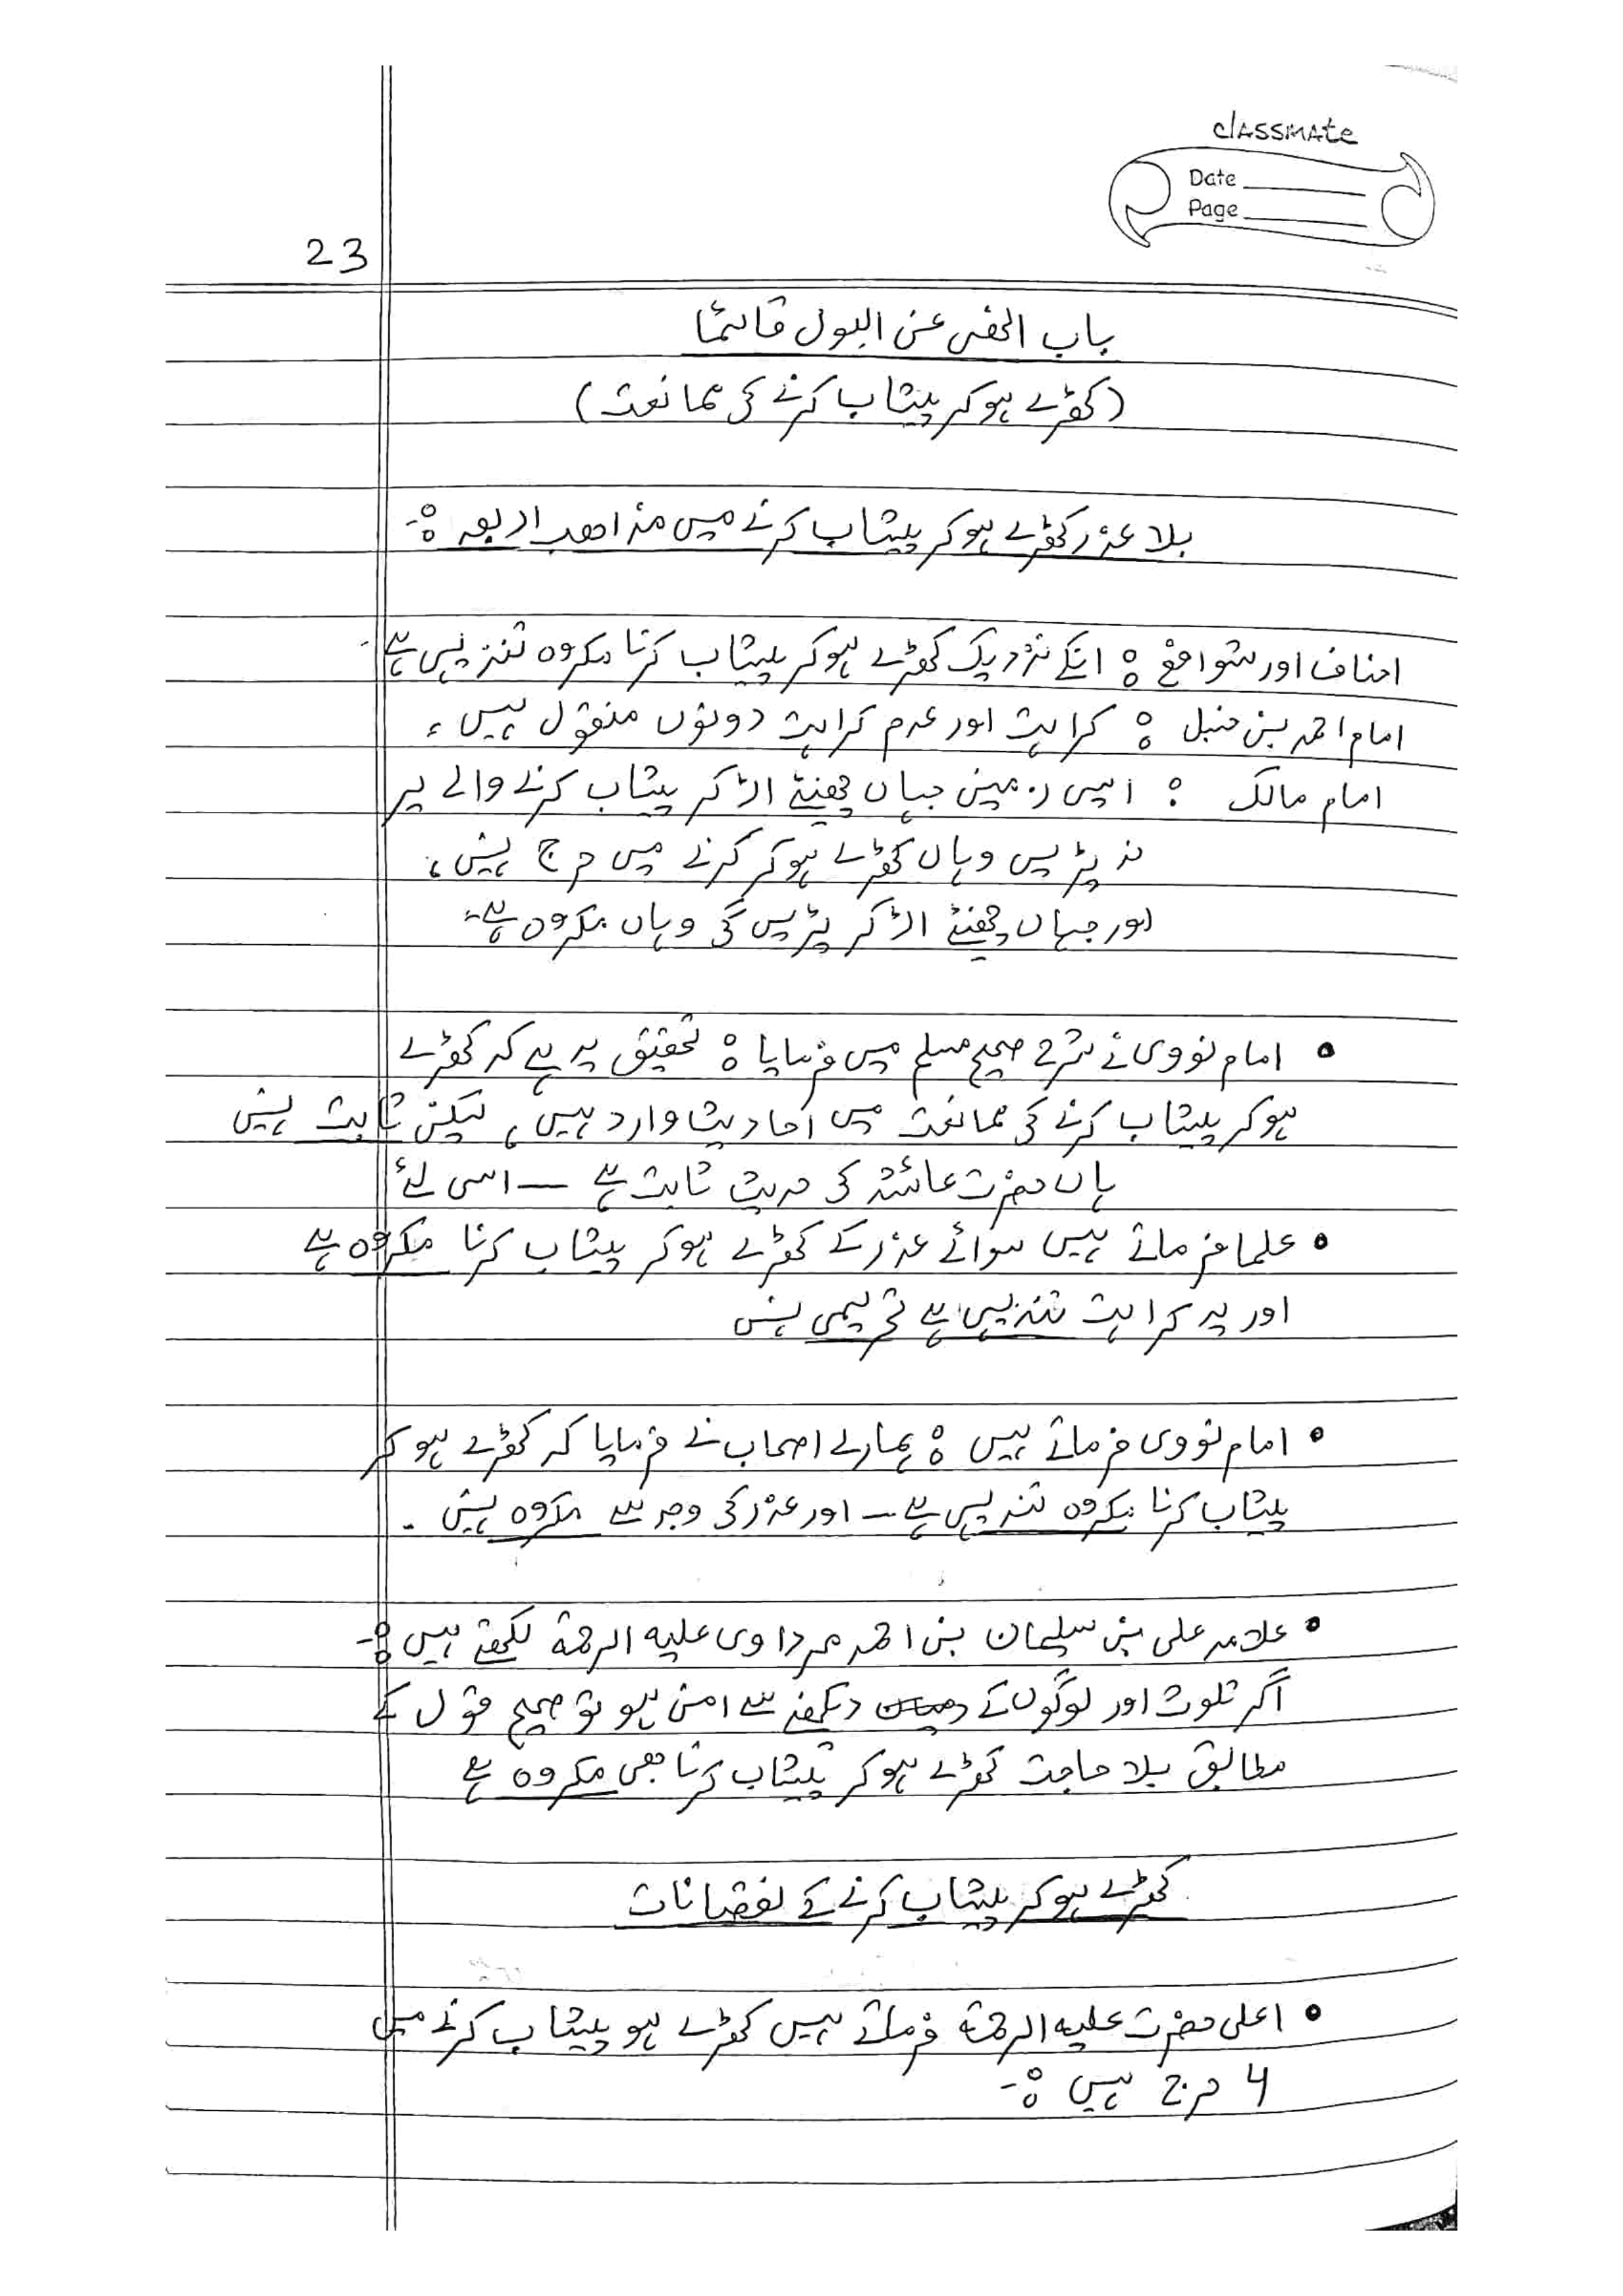 classmate
Date
Page
23
باب النھی عن البول قائمًا
(کھڑے ہوکر پیشاب کرنے کی ممانعت)
بلا عذر کھڑے ہوکر پیشاب کرنے میں مذاھب اربعہ :-
احناف اور شوافع : انکے نزدیک کھڑے ہوکر پیشاب کرنا مکروہ تنزیہی ہے۔
امام احمد بن حنبل : کراہت اور عدم کراہت دونوں منقول ہیں،
امام مالک : ایسی زمین جہاں چھینٹے اڑ کر پیشاب کرنے والے پر
نہ پڑیں وہاں کھڑے ہوکر کرنے میں حرج نہیں،
اور جہاں چھینٹے اڑ کر پڑیں گی وہاں مکروہ ہے۔
• امام نووی نے شرح صحیح مسلم میں فرمایا : تحقیق یہ ہے کہ کھڑے
ہوکر پیشاب کرنے کی ممانعت میں احادیث وارد ہیں، لیکن ثابت نہیں
ہاں حضرت عائشہ کی حدیث ثابت ہے — اسی لئے
• علما فرماتے ہیں سوائے عذر کے کھڑے ہوکر پیشاب کرنا مکروہ ہے
اور یہ کراہت تنزیہی ہے تحریمی نہیں
• امام نووی فرماتے ہیں : ہمارے اصحاب نے فرمایا کہ کھڑے ہوکر
پیشاب کرنا مکروہ تنزیہی ہے — اور عذر کی وجہ سے مکروہ نہیں ۔
• علامہ علی بن سلیمان بن احمد مرداوی علیہ الرحمۃ لکھتے ہیں :-
اگر تلوث اور لوگوں کے دیکھنے سے امن ہو تو صحیح قول کے
مطابق بلا حاجت کھڑے ہوکر پیشاب کرنا بھی مکروہ ہے
کھڑے ہوکر پیشاب کرنے کے نقصانات
• اعلی حضرت علیہ الرحمۃ فرماتے ہیں کھڑے ہو پیشاب کرنے میں
4 حرج ہیں :-